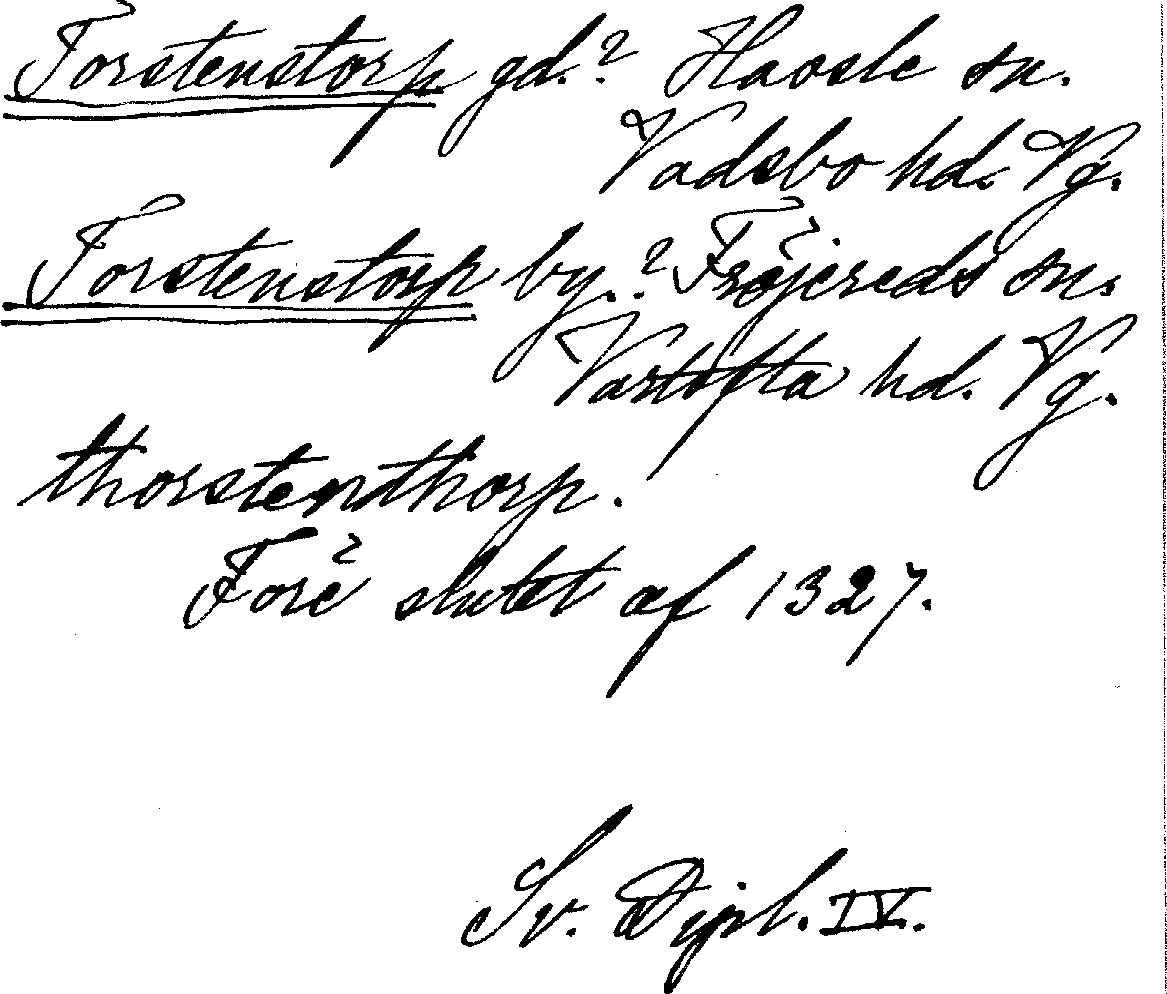 Torstenstorp gd.? Hassle sn.
Vadsbo hd. Vg.
Torstenstorp by.? Fröjereds sn.
Vartofta hd. Vg.
thorstenthorp.
Före slutet af 1327.
Sv. Dipl. IV.